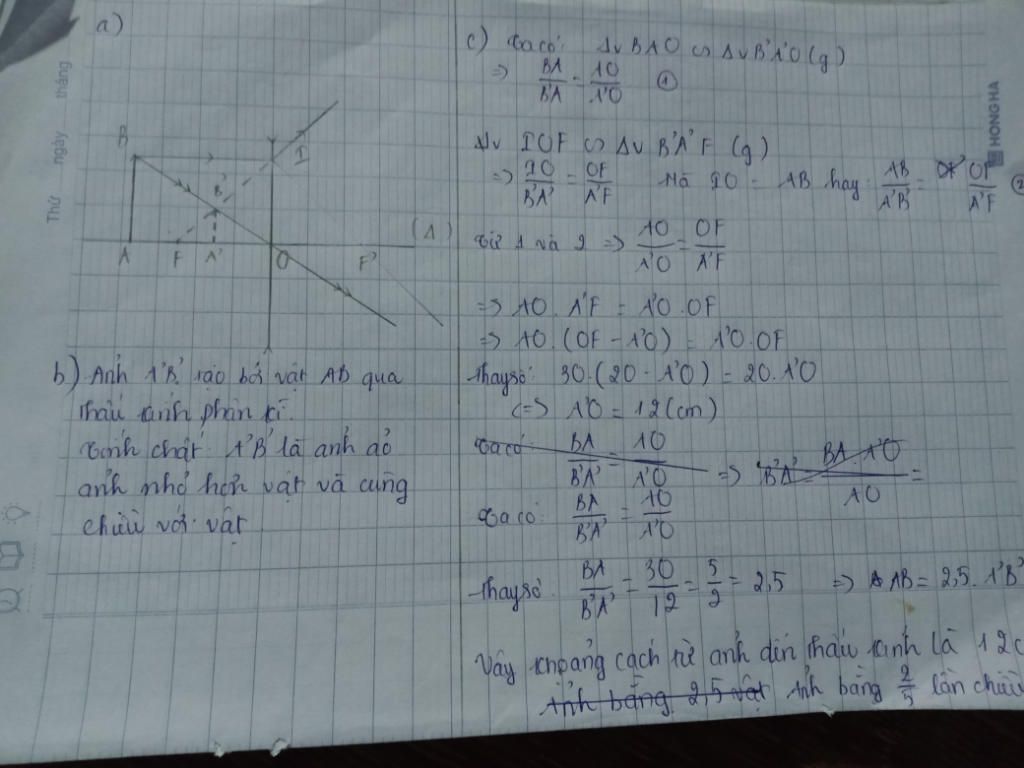 a)
B
I
B'
A
F
A'
O
F'
(Δ)
b) Ảnh A'B' tạo bởi vật AB qua
thấu kính phân kì.
Tính chất: A'B' là ảnh ảo
ảnh nhỏ hơn vật và cùng
chiều với vật
c) Ta có: Δv BAO ∽ Δv B'A'O (g)
=> BA/B'A' = AO/A'O ①
Δv IOF ∽ Δv B'A'F (g)
=> IO/B'A' = OF/A'F Mà IO = AB hay: AB/A'B' = OF/A'F ②
Từ 1 và 2 => AO/A'O = OF/A'F
=> AO. A'F = A'O. OF
=> AO. (OF - A'O) = A'O. OF
thay số: 30.(20 - A'O) = 20. A'O
<=> A'O = 12 (cm)
Ta có BA/B'A' = AO/A'O => B'A' = BA. A'O/AO =
Ta có: BA/B'A' = AO/A'O
thay số: BA/B'A' = 30/12 = 5/2 = 2,5 => AB = 2,5. A'B'
Vậy khoảng cách từ ảnh đến thấu kính là 12c
Ảnh bằng 2,5 vật Ảnh bằng 2/5 lần chiều
Thứ ngày tháng
HONG HA